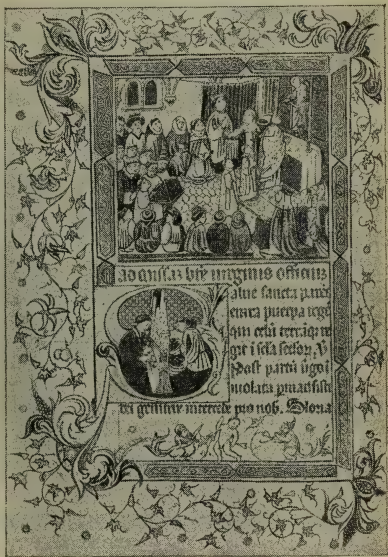 virginis officium
alve sancta pare
enixa puerpa rege
qui celū terrāqꝫ re
git ī scla seclor. V̄
Post partū v̄go ī
violata pmansisti
dei genitrix intercede pro nob. Gloria